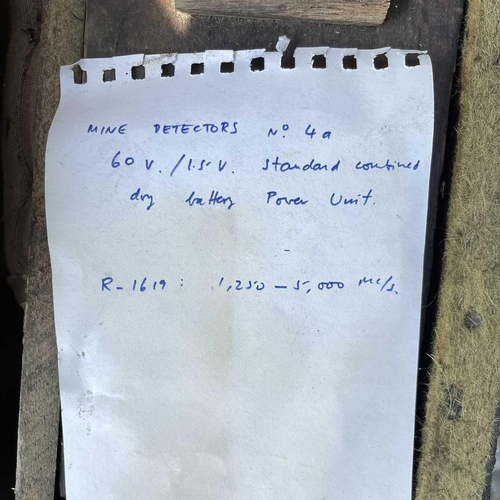 MINE DETECTORS Nº 4a
60 V. / 1.5 V. Standard combined
dry battery Power Unit.
R-1619 : 1,250 – 5,000 Mc/s.